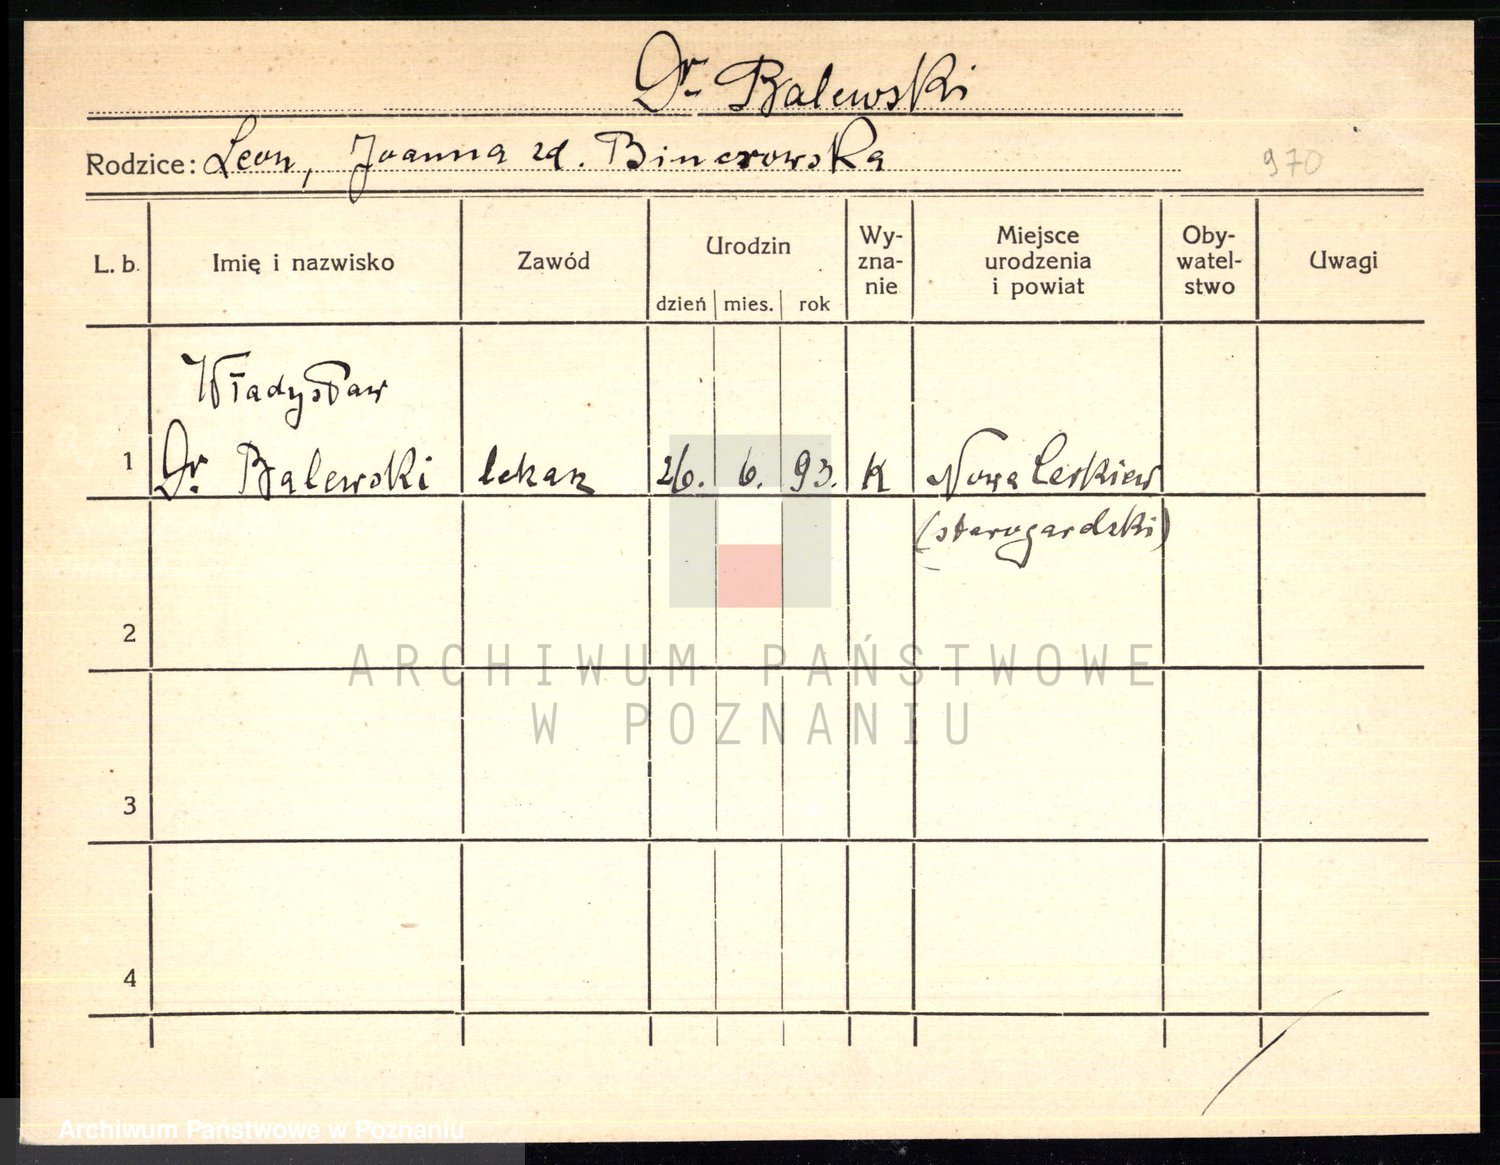 Dr. Balewski
Rodzice: Leon, Joanna zd. Binerowska
970
L. b. Imię i nazwisko Zawód Urodzin dzień mies. rok Wy-zna-nie Miejsce urodzenia i powiat Oby-watel-stwo Uwagi
Władysław
1 Dr. Balewski lekarz 26. 6. 93. K Nowa
(starogardzki)
2
ARCHIWUM PAŃSTWOWE
W POZNANIU
3
4
Archiwum Państwowe w Poznaniu